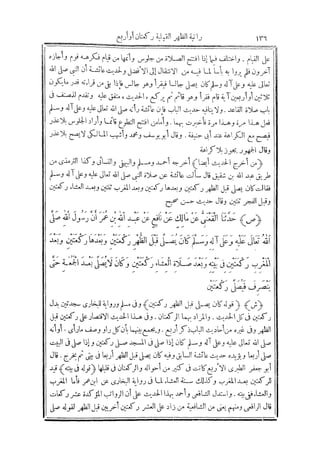 راتبة الظهر القبلية ركعتان أو أربع ١٣٦
على القيام. واختلف فيما إذا افتتح الصلاة من جلوس وأتمها من قيام فكرهه قوم وأجازه
آخرون فلم يروا به بأسا لما فيه من الانتقال إلى الأفضل وحديث عائشة أن النبي صلى الله
تعالى عليه وعلى آله وسلم كان يصلي جالسا فيقرأ وهو جالس فإذا بقي من قراءته قدر ما يكون
ثلاثين أو أربعين آية قام فقرأ وهو قائم ثم يركع، الحديث، متفق عليه وتقدم للمصنف في
باب صلاة القاعد. ولا ينافيه حديث الباب فإن عائشة رأته صلى الله تعالى عليه وعلى آله وسلم
فعل هذا مرة وهذا مرة فأخبرت بهما. وأما من افتتح التطوع قائما وأراد الجلوس بلا عذر
فيصح مع الكراهة عند أبي حنيفة. وقال أبو يوسف ومحمد وأشهب المالكي لا يصح بلا عذر
وقال الجمهور يجوز بلا كراهة
﴿من أخرج الحديث أيضا﴾ أخرجه أحمد ومسلم والبيهقي والنسائي وكذا الترمذي من
طريق عبد الله بن شقيق قال سألت عائشة عن صلاة النبي صلى الله تعالى عليه وعلى آله وسلم
فقالت كان يصلي قبل الظهر ركعتين وبعدها ركعتين وبعد المغرب ثنتين وبعد العشاء ركعتين
وقبل الفجر ثنتين وقال حديث حسن صحيح
﴿ص﴾ حَدَّثَنَا الْقَعْنَبِيُّ عَنْ مَالِكٍ عَنْ نَافِعٍ عَنْ عَبْدِ اللهِ بْنِ عُمَرَ أَنَّ رَسُولَ اللهِ صَلَّى
اللهُ تَعَالَى عَلَيْهِ وَعَلَى آلِهِ وَسَلَّمَ كَانَ يُصَلِّي قَبْلَ الظُّهْرِ رَكْعَتَيْنِ وَبَعْدَهَا رَكْعَتَيْنِ وَبَعْدَ
الْمَغْرِبِ رَكْعَتَيْنِ فِي بَيْتِهِ وَبَعْدَ صَلَاةِ الْعِشَاءِ رَكْعَتَيْنِ وَكَانَ لَا يُصَلِّي بَعْدَ الْجُمُعَةِ حَتَّى
يَنْصَرِفَ فَيُصَلِّيَ رَكْعَتَيْنِ
﴿ش﴾ ﴿قوله كان يصلي قبل الظهر ركعتين﴾ وفي مسلم ورواية للبخاري سجدتين بدل
ركعتين في كل الحديث. والمراد بهما الركعتان. وفي هذا الحديث الاقتصار على ركعتين قبل
الظهر وفي غيره من أحاديث الباب ذكر أربع. ويجمع بينهما بأن كل راو وصف ما رأى. أو أنه
صلى الله تعالى عليه وعلى آله وسلم كان إذا صلى في المسجد صلى ركعتين وإذا صلى في البيت
صلى أربعا ويؤيده حديث عائشة السابق وفيه كان يصلي قبل الظهر أربعا في بيتي ثم يخرج. قال
أبو جعفر الطبري الأربع كانت في كثير من أحواله والركعتان في قليلها ﴿قوله في بيته﴾ قيد
الركعتين بعد المغرب وكذلك سنة العشاء لما في رواية البخاري عن ابن عمر فأما المغرب
والعشاء ففي بيته. واستدل الشافعي وأحمد بهذا الحديث على أن الرواتب المؤكدة عشر ركعات
قال الرافعي ومنهم يعني من الشافعية من زاد على العشر ركعتين أخريين قبل الظهر لقوله صلى